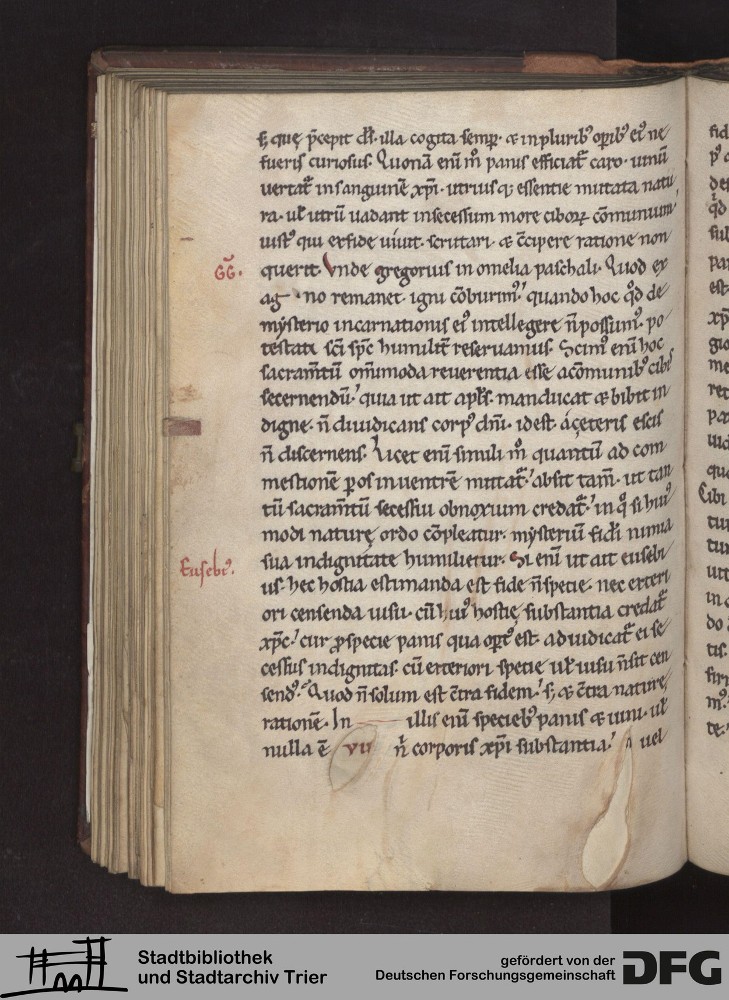 s; quę p̄cepit d̄s. illa cogita semꝑ. & in plurib᷒ oꝑib᷒ ei᷒ ne
fueris curiosus. Quonā eni̅ m̊ panis efficiat᷑ caro. utrū
vertat᷑ in sanguinē xp̄i. utrius q; essentie mutata natu
ra. ul̕ utrū uadant in secessum more ciboꝝ cōmunium.
iust᷒ qui ex fide uiuit. scrutari. & c̄cipere ratione non
GG̅.
querit. Vnde gregorius in omelia paschali. Quod ex
ag no remanet igni cōburim᷒. quando hoc q̊d de
mysterio incarnationis ei᷒ intellegere n̄ possum᷒. po
testati sc̄i sp̄c humilit᷑ reseruamus. Scim᷒ eni̅ hoc
sacram̄tū om̄imoda reuerentia esse a cōmunib᷒ cibis
secernendū. quia ut ait apl̄s. manducat & bibit in
digne. n̄ diiudicans corp᷒ dn̄i. id est. a çeteris escis
n̄ discernens. Licet eni̅ simili m̊ quantū ad com
mestionē ꝑ os in uentrē mittat᷑. absit tam̄. ut tan
tū sacram̄tū secessui obnoxium credat᷑. in q̊ si hui᷒
modi naturę ordo cōpleatur. mysteriū fidei nimia
Euseb᷒.
sua indignitate humilietur. Si eni̅ ut ait eusebi
us. hec hostia estimanda est fide n̄ specie. nec exteri
ori censenda uisu. cū hui᷒ hostię substantia credat᷑
xp̄c. cur ꝓ specie panis qua oꝑt᷒ est. adiudicat᷑ ei se
cessus indignitas. cū exteriori specie ul̕ uisu n̄ sit cen
send᷒. Quod n̄ solum est c̄tra fidem. s; & c̄tra naturę
rationē. In illis eni̅ specieb᷒ panis & uini. ul̕
nulla ē vii n̄ corporis xp̄i substantia. uel
Stadtbibliothek
und Stadtarchiv Trier
gefördert von der
Deutschen Forschungsgemeinschaft
DFG